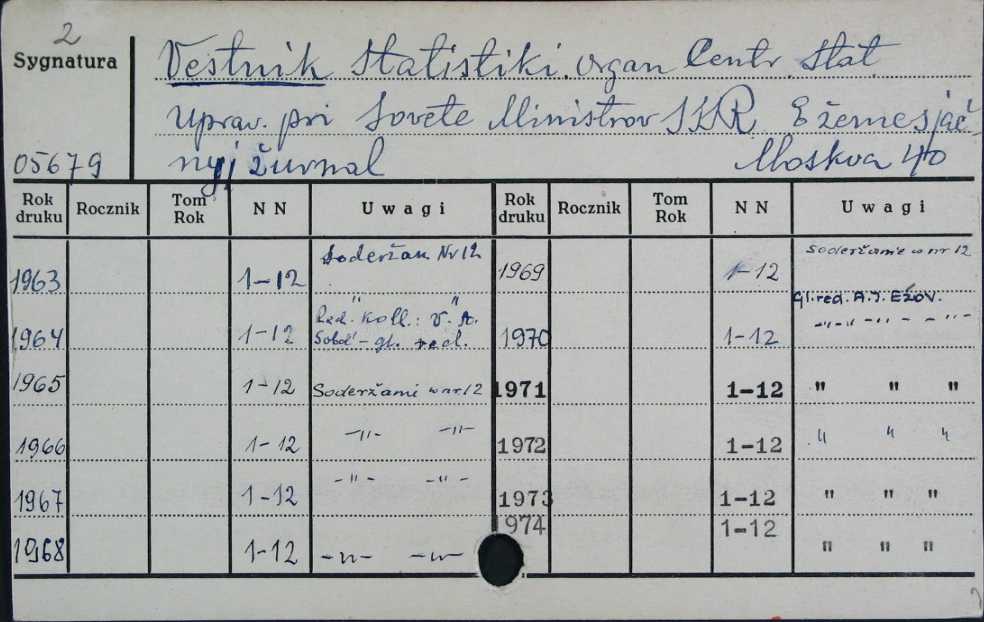 2
Sygnatura
Vestnik Statistiki. organ Centr. Stat.
Uprav. pri Sovete Ministrov SSSR Ežemesjač-
05679 nyj žurnal Moskva 40
Rok druku Rocznik Tom Rok N N Uwagi Rok druku Rocznik Tom Rok N N Uwagi
1963 1-12 Soderžan. Nr 12 1969 1-12 Soderžanie w nr 12
1964 1-12 " " Red. Koll.: V. A. Sobol' - gl. red. 1970 1-12 Gl. red. A. I. EŽOV. -"-"- -"- - -"-
1965 1-12 Soderžami w nr 12 1971 1-12 " " "
1966 1-12 -"- -"- 1972 1-12 " " "
1967 1-12 -"- -"- 1973 1-12 " " "
1968 1-12 -"- -"- 1974 1-12 " " "